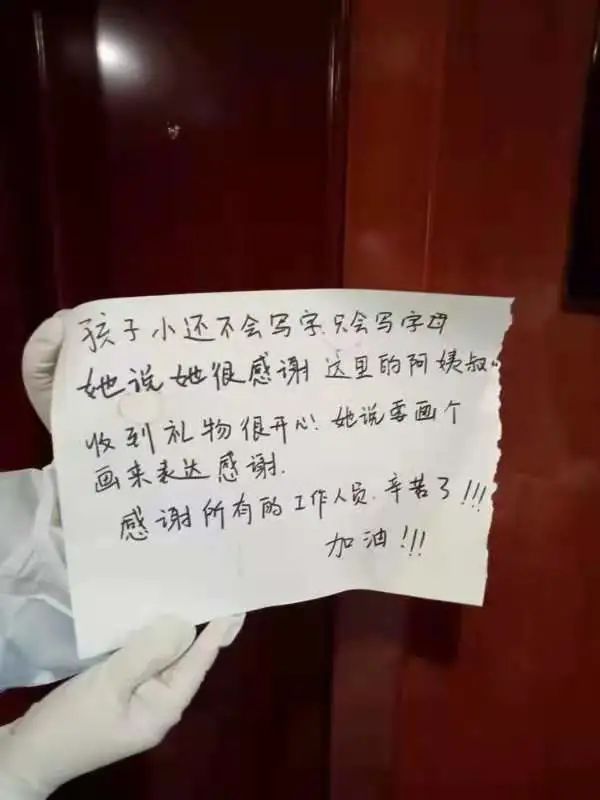 孩子小还不会写字.只会写字母
她说她很感谢 这里的阿姨叔"
收到礼物很开心!她说要画个
画来表达感谢.
感谢所有的工作人员.辛苦了!!!
加油!!!